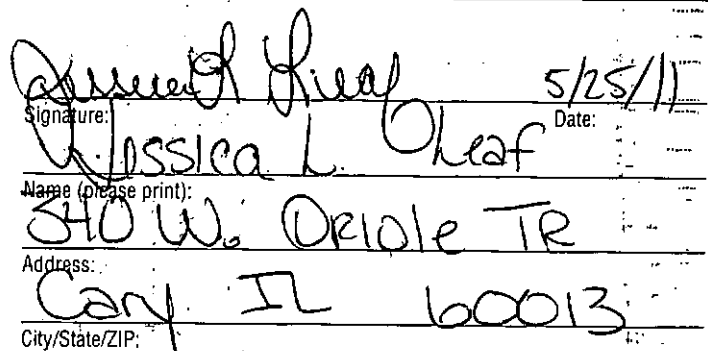 5/25/11
Signature: Date:
Jessica L. Leaf
Name (please print):
540 W. Oriole TR
Address:
Cary IL 60013
City/State/ZIP: